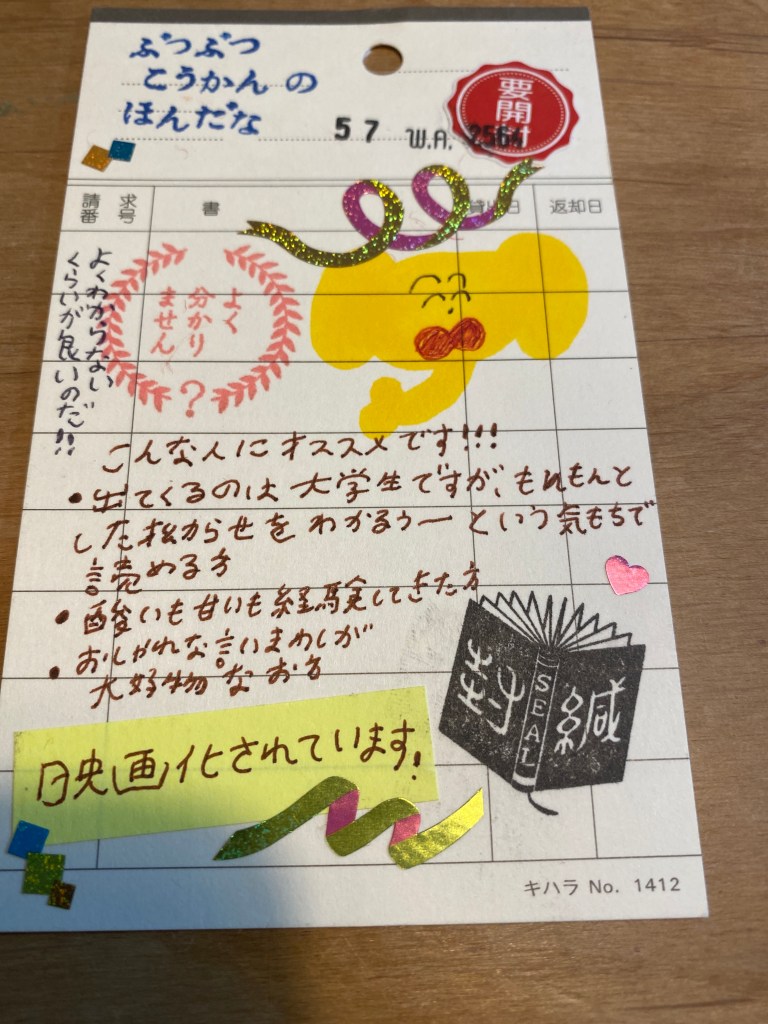 ぶつぶつ
こうかんの
ほんだな
要開封
57 W.A. 2564
請求番号 書 貸出日 返却日
よくわからない
くらいが良いのだ!!
よく
分かり
ません
?
こんな人にオススメです!!!
・出てくるのは大学生ですが、もれもんと
した松からせをわかるぅーという気もちで
読める方
・酸いも甘いも経験してきた方
・おしゃれな言いまわしが
大好物なお方
封緘
SEAL
映画化されています!
キハラ No. 1412